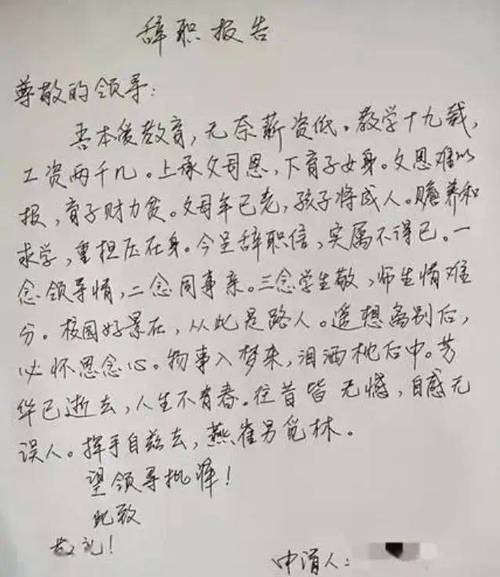 辞职报告
尊敬的领导:
吾本後教育,无奈薪资低。教学十九载,
工资两千几。上承父母恩,下育子女身。父恩难以
报,育子财力贫。父母年已老,孩子将成人。赡养和
求学,重担压在身。今呈辞职信,实属不得已。一
念领导情,二念同事亲。三念学生敬,师生情难
分。校园好景在,从此是路人。遥想离别后,
必怀思念心。物事入梦来,泪洒枕后中。芳
华已逝去,人生不有春。往昔皆无憾,自感无
误人。挥手自兹去,燕雀另觅林。
望领导批准!
此致
敬礼!
申请人: